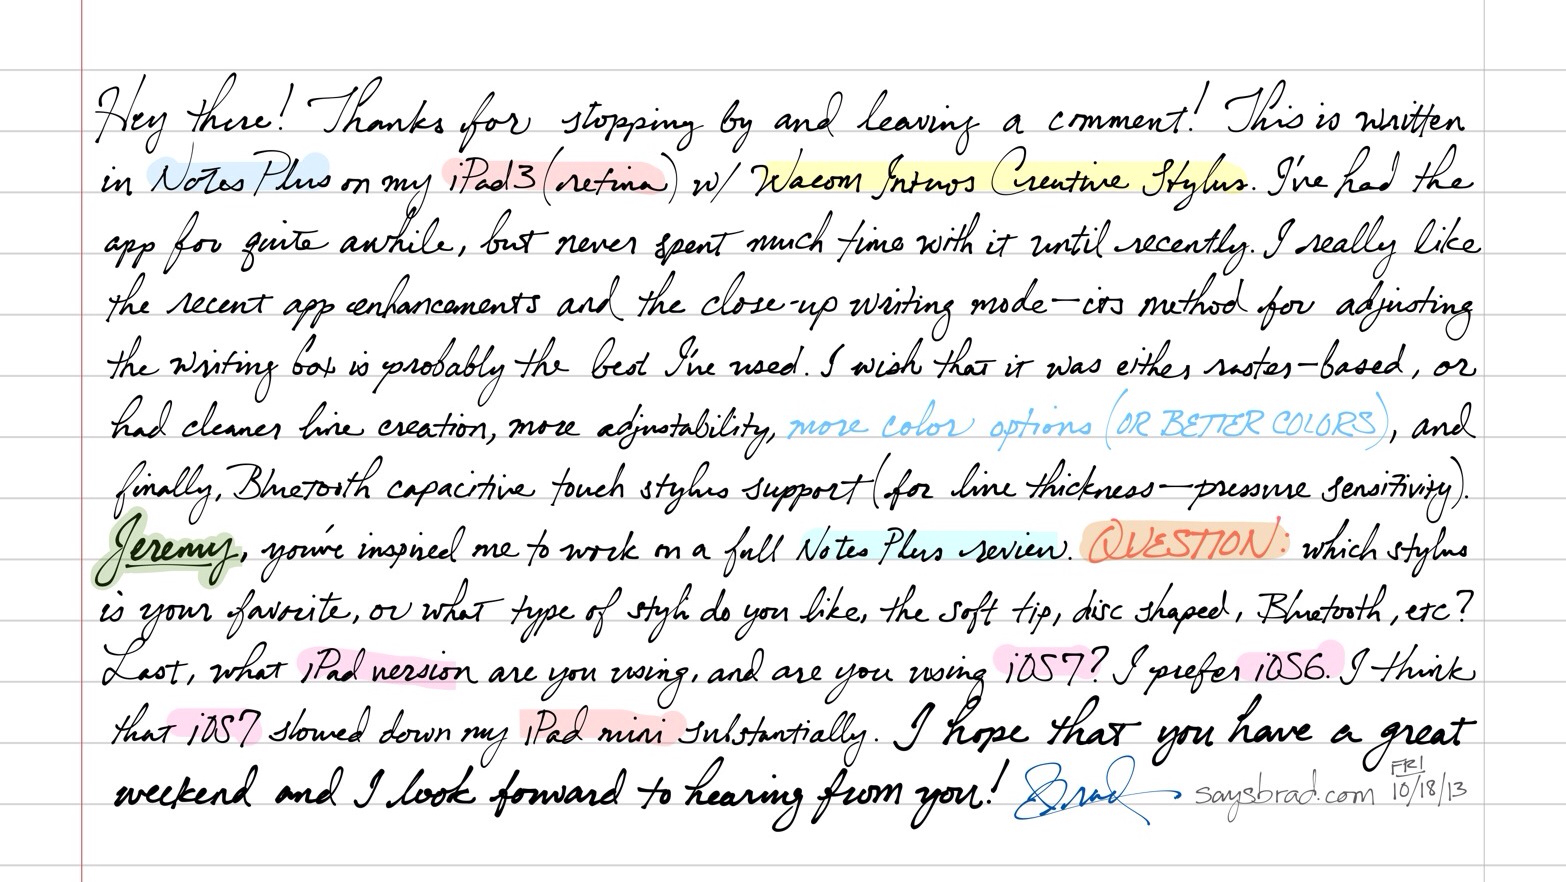 Hey there! Thanks for stopping by and leaving a comment! This is written
in Notes Plus on my iPad3 (retina) w/ Wacom Intuos Creative Stylus. I've had the
app for quite awhile, but never spent much time with it until recently. I really like
the recent app enhancements and the close-up writing mode—its method for adjusting
the writing box is probably the best I've used. I wish that it was either raster-based, or
had cleaner line creation, more adjustability, more color options (OR BETTER COLORS), and
finally, Bluetooth capacitive touch stylus support (for line thickness—pressure sensitivity).
Jeremy, you've inspired me to work on a full Notes Plus review. QUESTION: which stylus
is your favorite, or what type of styli do you like, the soft tip, disc shaped, Bluetooth, etc?
Last, what iPad version are you using, and are you using iOS7? I prefer iOS6. I think
that iOS7 slowed down my iPad mini substantially. I hope that you have a great
weekend and I look forward to hearing from you! Brad saysbrad.com FRI 10/18/13